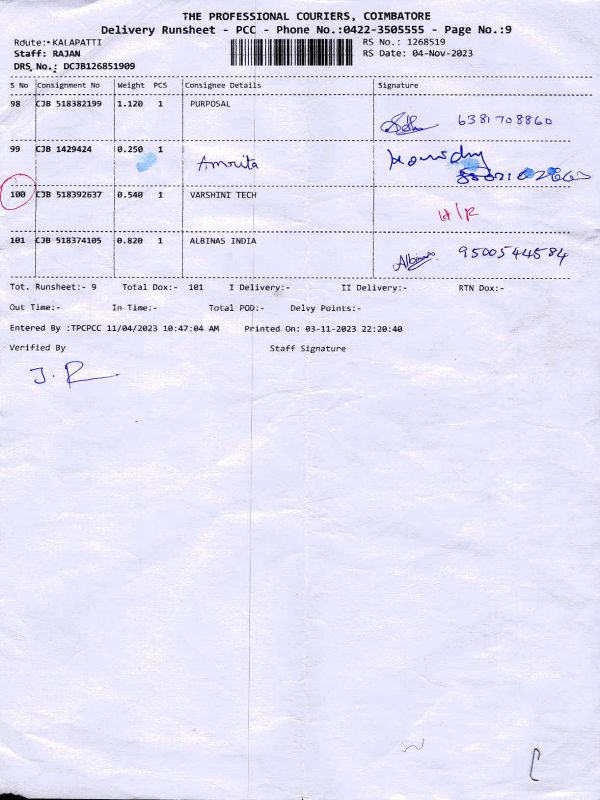 THE PROFESSIONAL COURIERS, COIMBATORE
Delivery Runsheet - PCC - Phone No.:0422-3505555 - Page No.:9
Rdute: KALAPATTI RS No.: 1268519
Staff: RAJAN RS Date: 04-Nov-2023
DRS No.: DCJB126851909
S No Consignment No Weight PCS Consignee Details Signature
98 CJB 518382199 1.120 1 PURPOSAL
6381708860
99 CJB 1429424 0.250 1
Amrita
100 CJB 518392637 0.540 1 VARSHINI TECH
101 CJB 518374105 0.820 1 ALBINAS INDIA
9500544584
Tot. Runsheet:- 9 Total Dox:- 101 I Delivery:- II Delivery:- RTN Dox:-
Out Time:- In Time:- Total POD:- Delvy Points:-
Entered By :TPCPCC 11/04/2023 10:47:04 AM Printed On: 03-11-2023 22:20:40
Verified By Staff Signature